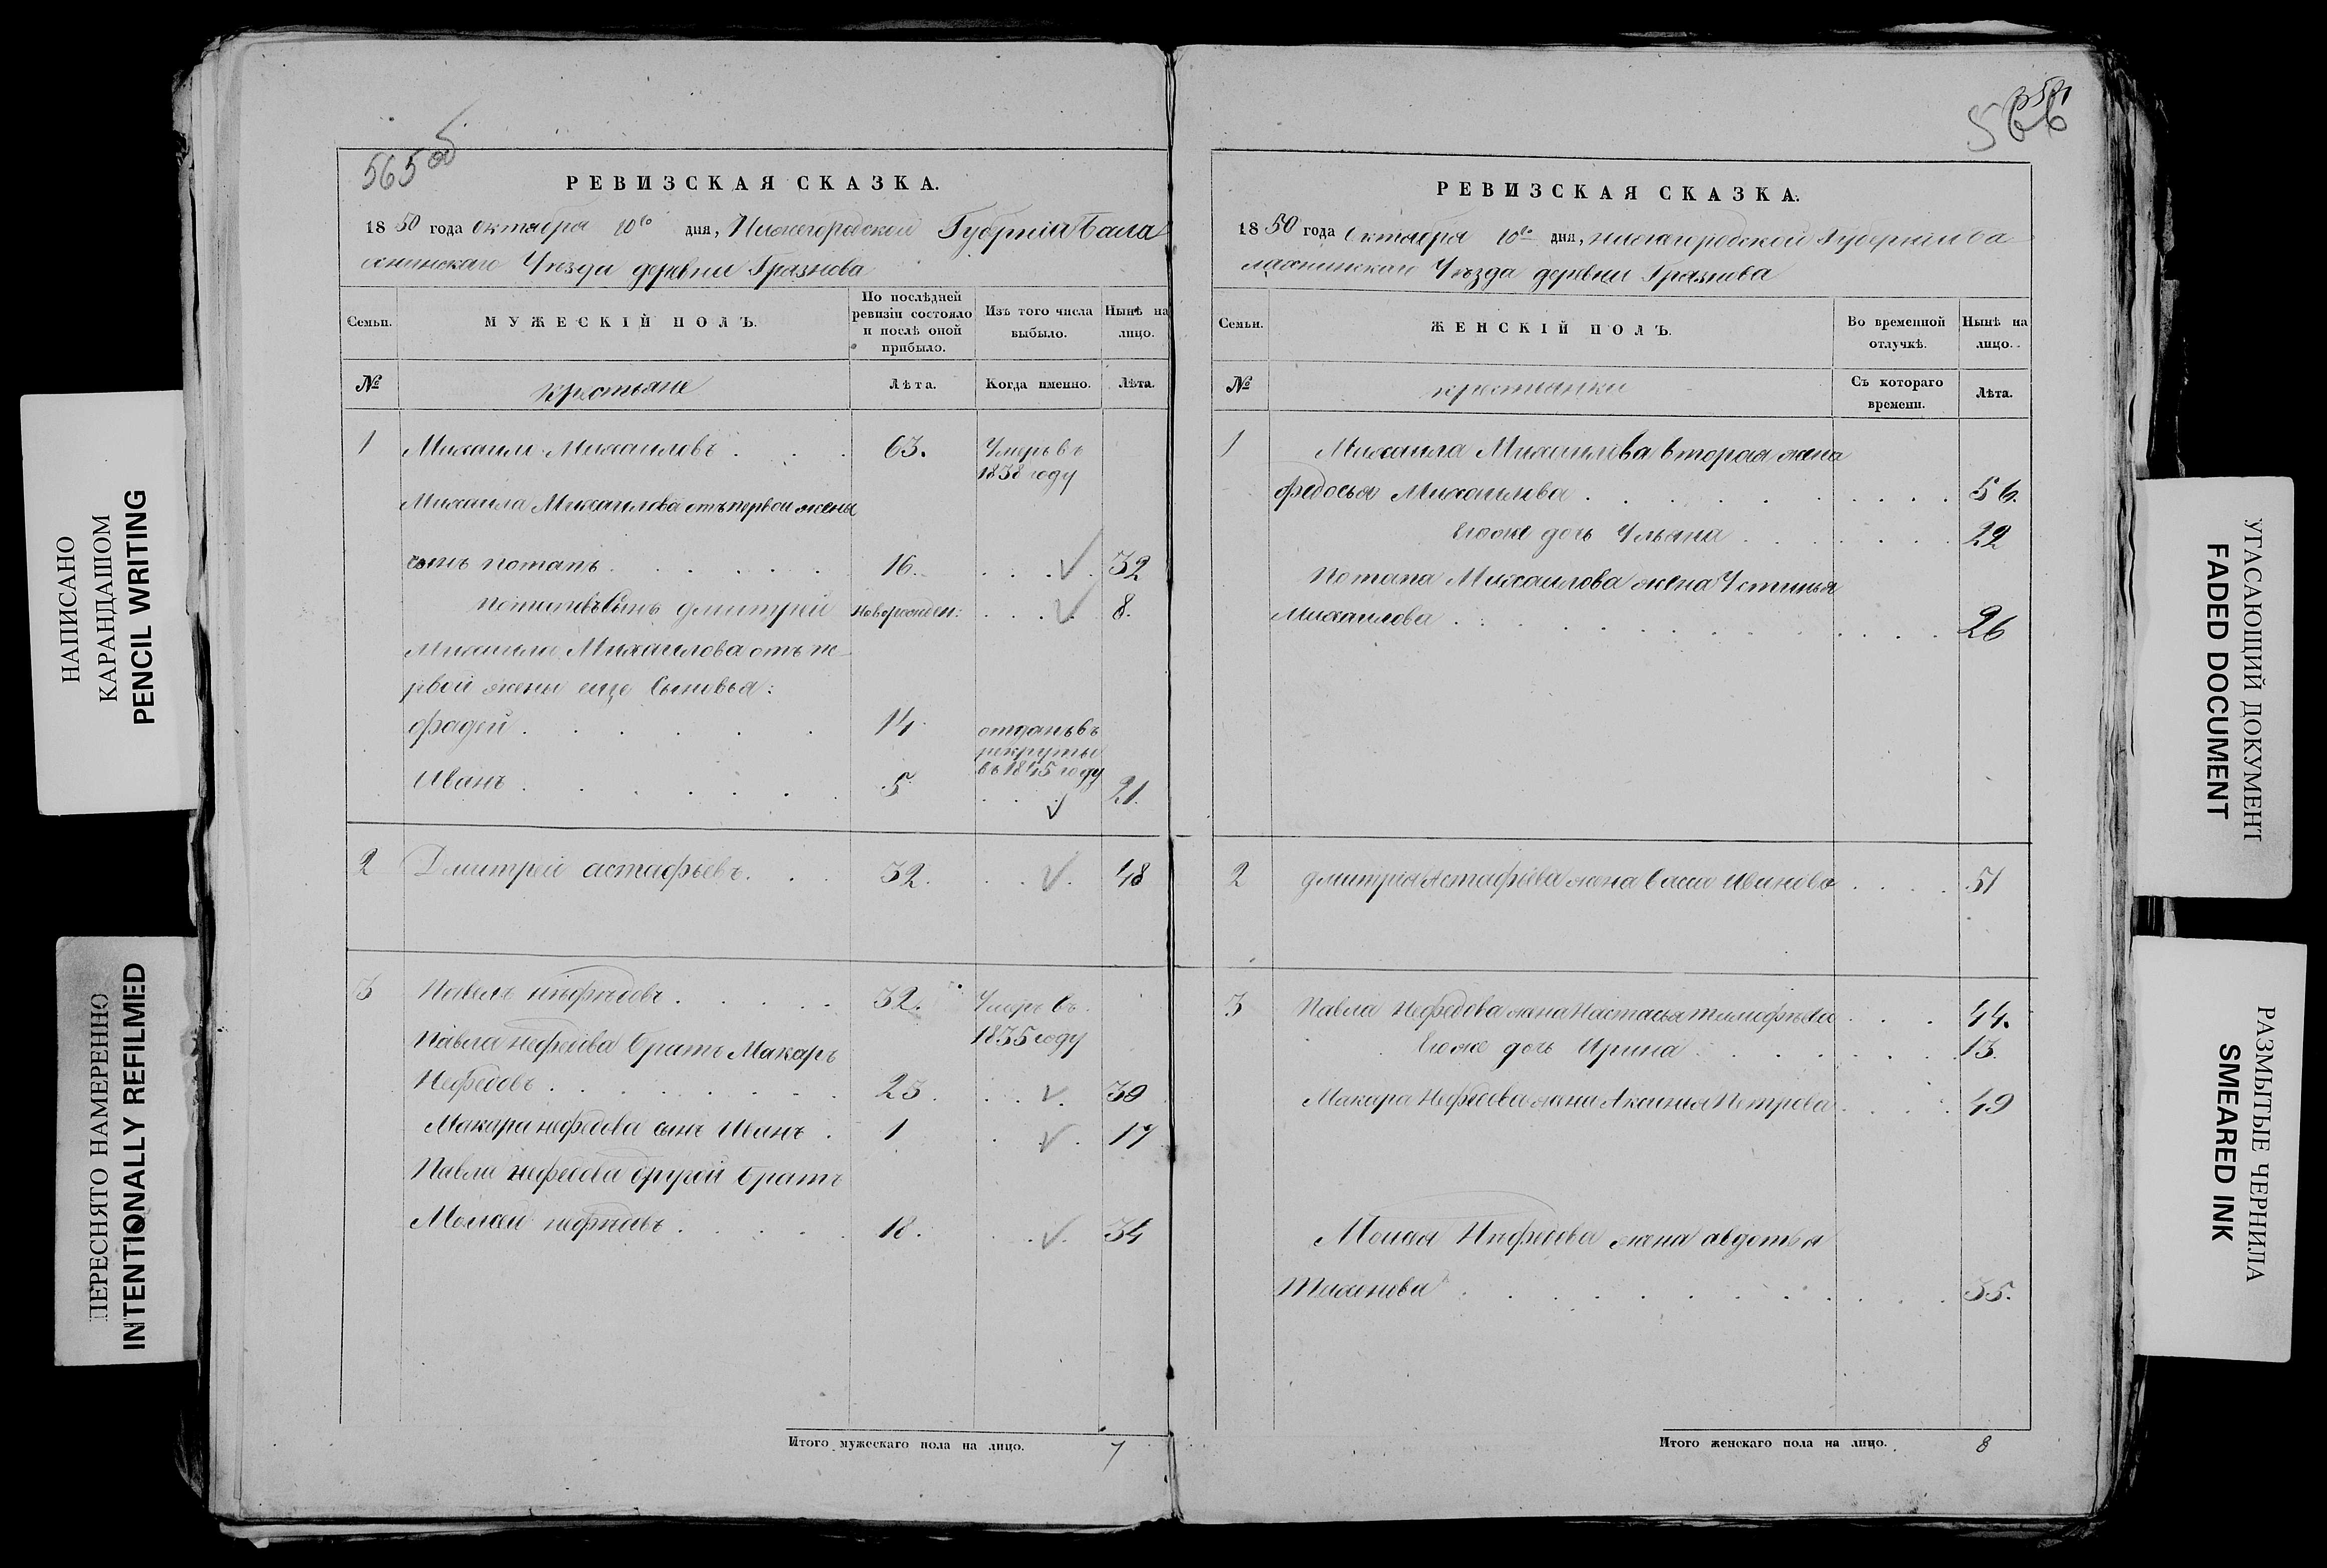 565 об
РЕВИЗСКАЯ СКАЗКА.
1850 года Октября 10го дня, Нижегородской Губернии Бала
хнинскаго Уѣзда деревни Грязнова
Семьи.
МУЖЕСКІЙ ПОЛЪ.
По послѣдней ревизіи состояло и послѣ оной прибыло.
Изъ того числа выбыло.
Нынѣ на лицо.
№
Крестьяне
Лѣта.
Когда именно.
Лѣта.
1 Михаилъ Михаиловъ . . . 63. Умеръ въ
1838 году
Михаила Михаилова отъ первой жены
сынъ Потапъ . . . . . 16. . . . √ . 32
Потаповъ сынъ Дмитрей новорожден: . . . √ 8.
Михаила Михаилова отъ пе-
рвой жены еще сыновья:
Фадей . . . . . . 14. отданъ въ
рекруты
въ 1845 году
Иванъ . . . . . . 5 . . √ 21.
2 Дмитрей Астафьевъ . . . 32. . . √ . 48
3 Павелъ Нефедовъ . . . . . 32. Умеръ въ
1835 году
Павла Нефедова братъ Макаръ
Нефедовъ . . . . . . . 23. . . √ . 39
Макара Нефедова сынъ Иванъ . 1 . √ . 17
Павла Нефедова другой братъ
Моисей Нефедовъ . . . . . 18. . . √ . 34
Итого мужескаго пола на лицо. 7
566
РЕВИЗСКАЯ СКАЗКА.
1850 года Октября 10го дня, Нижегородской Губернии Ба
лахнинскаго Уѣзда деревни Грязнова
Семьи.
ЖЕНСКІЙ ПОЛЪ.
Во временной отлучкѣ.
Нынѣ на лицо.
№
крестьянки
Съ котораго времени.
Лѣта.
1 Михаила Михаилова вторая жена
Федосья Михаилова . . . . . . . . 56.
Егоже дочь Ульяна . . . . . . 22
Потапа Михаилова жена Устинья
Михаилова . . . . . . . . . . 26
2 Дмитрия Астафьева жена Васса Иванова . . . . 51
3 Павла Нефедова жена Настасья Тимофеева . . . 44.
Егоже дочь Ирина . . . . . . . 13.
Макара Нефедова жена Аксинья Петрова . . . . 49
Моисея Нефедова жена Авдотья
. . . . . . . . . . 35.
Итого женскаго пола на лицо. 8
НАПИСАНО
КАРАНДАШОМ
PENCIL WRITING
ПЕРЕСНЯТО НАМЕРЕННО
INTENTIONALLY REFILMED
УГАСАЮЩИЙ ДОКУМЕНТ
FADED DOCUMENT
РАЗМЫТЫЕ ЧЕРНИЛА
SMEARED INK